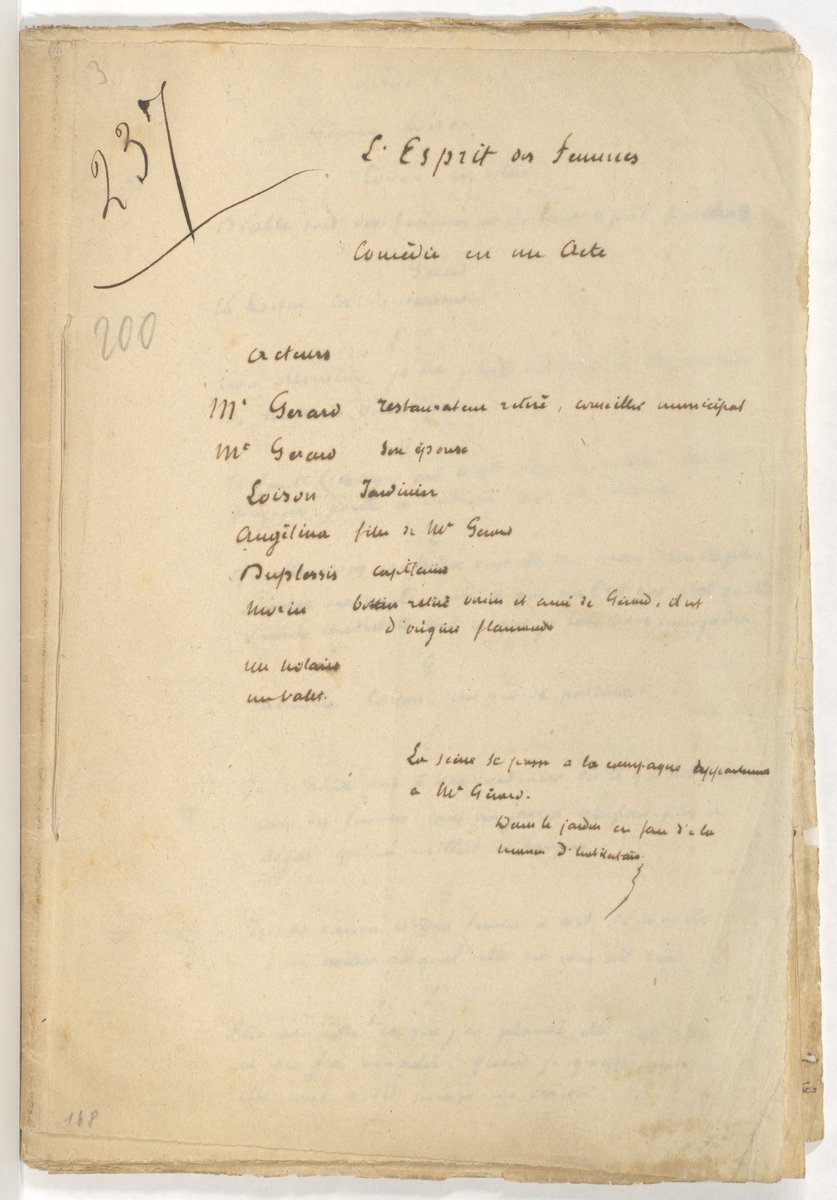 3
237
200
L'Esprit des Femmes
Comédie en un Acte
acteurs
Mr Gerard restaurateur retiré, conseiller municipal
Me Gerard son épouse
Loison Jardinier
Angélina fille de Mr Gerard
Duplessis capitaine
Morin bottier retiré voisin et ami de Gérard, il est
d'origine flamande
un notaire
un valet.
La scène se passe a la campagne appartenant
a Mr Gérard.
Dans le jardin en face de la
maison d'habitation.
168